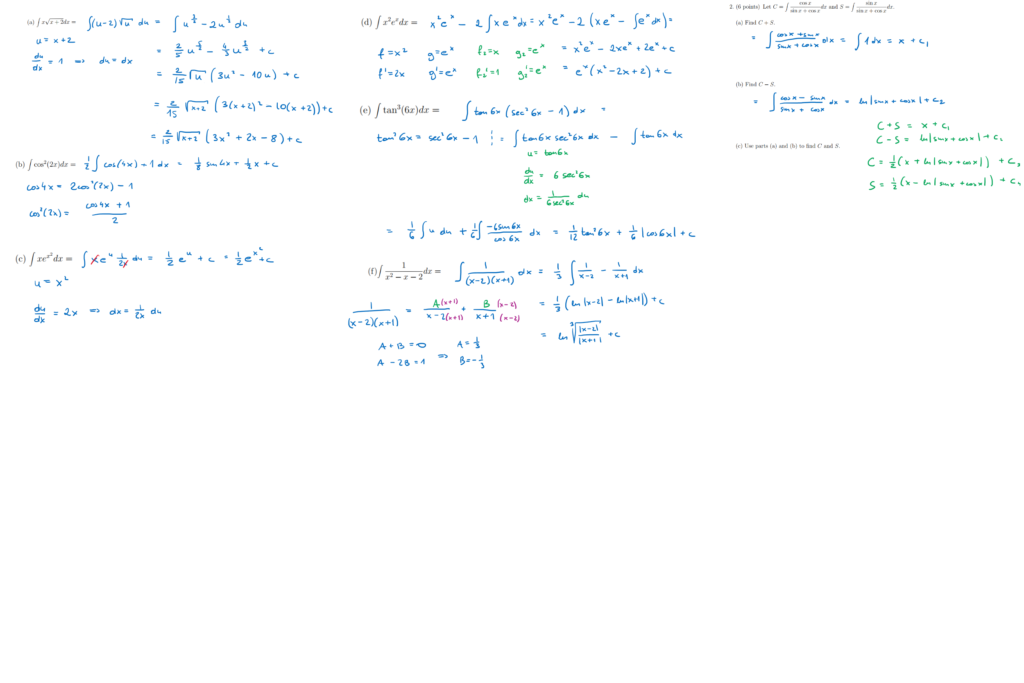 (a) ∫ x√(x+2) dx = ∫(u-2)√u du = ∫ u^(3/2) - 2u^(1/2) du
u = x+2
du/dx = 1 => du = dx
= 2/5 u^(5/2) - 4/3 u^(3/2) + c
= 2/15 √u (3u² - 10u) + c
= 2/15 √(x+2) (3(x+2)² - 10(x+2)) + c
= 2/15 √(x+2) (3x² + 2x - 8) + c
(b) ∫ cos²(2x)dx = 1/2 ∫ cos(4x) + 1 dx = 1/8 sin 4x + 1/2 x + c
cos 4x = 2cos²(2x) - 1
cos²(2x) = (cos 4x + 1)/2
(c) ∫ xe^(x²) dx = ∫ x e^u 1/(2x) du = 1/2 e^u + c = 1/2 e^(x²) + c
u = x²
du/dx = 2x => dx = 1/(2x) du
(d) ∫ x²e^x dx = x²e^x - 2 ∫ x e^x dx = x²e^x - 2 (xe^x - ∫e^x dx) =
f = x² g = e^x f₂ = x g₂ = e^x = x²e^x - 2xe^x + 2e^x + c
f' = 2x g' = e^x f₂' = 1 g₂' = e^x = e^x (x² - 2x + 2) + c
(e) ∫ tan³(6x)dx = ∫ tan 6x (sec² 6x - 1) dx =
tan² 6x = sec² 6x - 1 = ∫ tan 6x sec² 6x dx - ∫ tan 6x dx
u = tan 6x
du/dx = 6 sec² 6x
dx = 1/(6 sec² 6x) du
= 1/6 ∫ u du + 1/6 ∫ (-6 sin 6x)/(cos 6x) dx = 1/12 tan² 6x + 1/6 |cos 6x| + c
(f) ∫ 1/(x² - x - 2) dx = ∫ 1/((x-2)(x+1)) dx = 1/3 ∫ 1/(x-2) - 1/(x+1) dx
1/((x-2)(x+1)) = A(x+1)/(x-2(x+1)) + B(x-2)/(x+1(x-2)) = 1/3 (ln|x-2| - ln|x+1|) + c
= ln ∛(|x-2|/|x+1|) + c
A + B = 0 A = 1/3
A - 2B = 1 => B = -1/3
2. (6 points) Let C = ∫ cos x/(sin x + cos x) dx and S = ∫ sin x/(sin x + cos x) dx.
(a) Find C + S.
= ∫ (cos x + sin x)/(sin x + cos x) dx = ∫ 1 dx = x + c₁
(b) Find C - S.
= ∫ (cos x - sin x)/(sin x + cos x) dx = ln|sin x + cos x| + c₂
C + S = x + c₁
C - S = ln|sin x + cos x| + c₂
(c) Use parts (a) and (b) to find C and S.
C = 1/2 (x + ln|sin x + cos x|) + c₃
S = 1/2 (x - ln|sin x + cos x|) + c₄